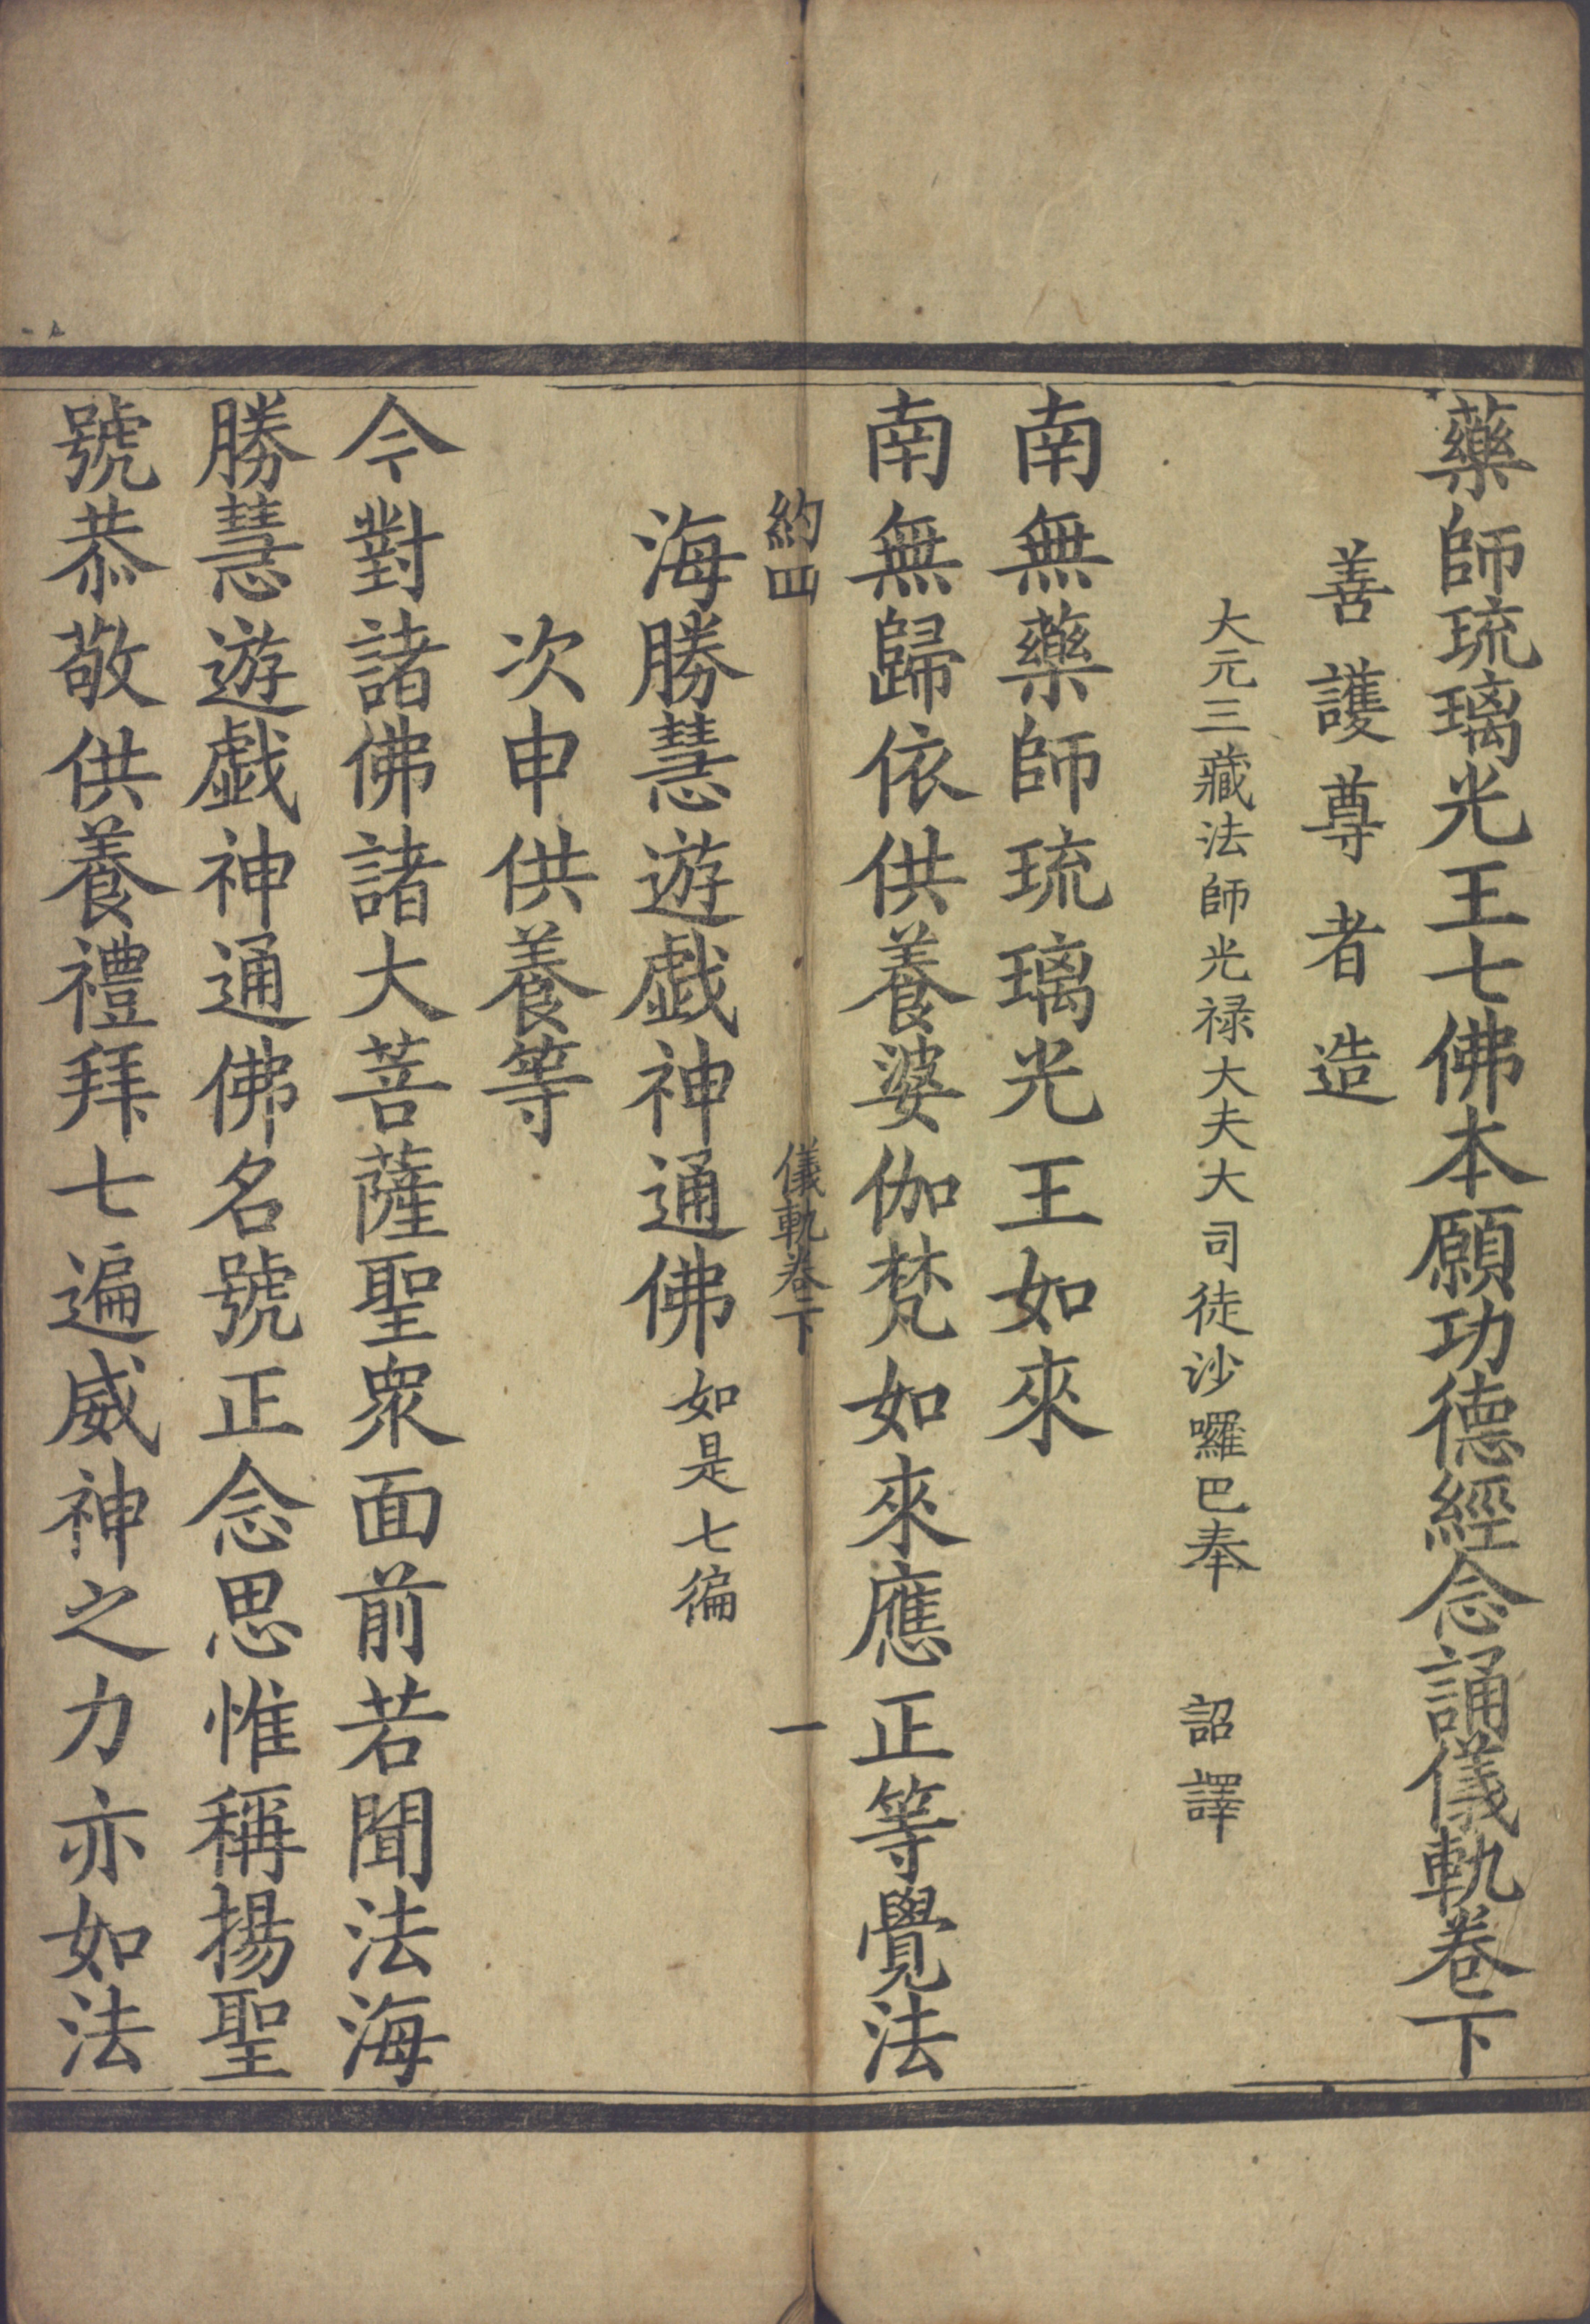 藥師琉璃光王七佛本願功德經念誦儀軌卷下
善護尊者造
大元三藏法師光禄大夫大司徒沙囉巴奉 詔譯
南無藥師琉璃光王如來
南無歸依供養婆伽梵如來應正等覺法
約四 儀軌卷下 一
海勝慧遊戯神通佛如是七徧
次申供養等
今對諸佛諸大菩薩聖眾面前若聞法海
勝慧遊戯神通佛名號正念思惟稱揚聖
號恭敬供養禮拜七遍威神之力亦如法